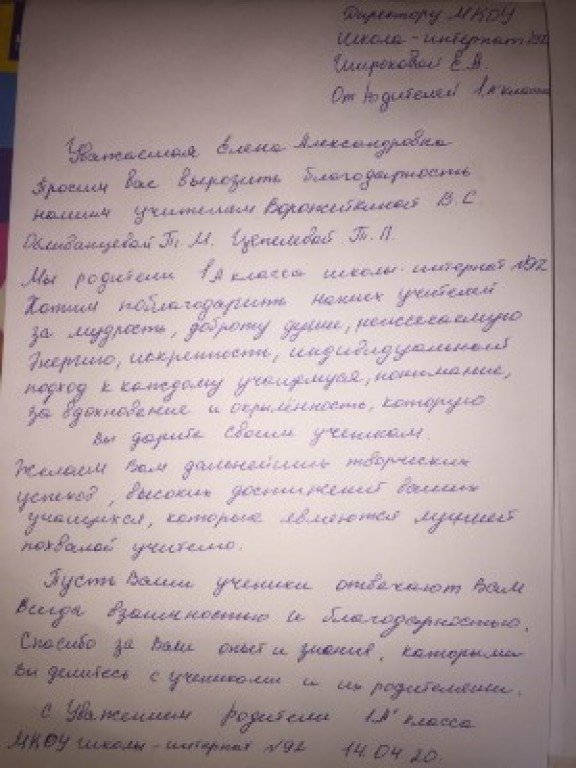 Директору МКОУ
Школа-интернат №92
Ширеховой Е.А.
От родителей 1А класса
Уважаемая Елена Александровна
Просим вас вырозить благодарность
нашим учителям Ворожейкиной В.С
Обливанцевой Т. М. Цепелевой Т.П.
Мы родители 1А класса школы-интернат №92
Хотим поблагодарить наших учителей
за мудрость, доброту души, неиссекаемую
Энергию, искренность, индивидуальный
подход к каждому учащемуся, понимание,
за вдохновение и окрылённость, которую
Вы дарите своим ученикам.
Желаем Вам дальнейших творческих
успехов, высоких достижений ваших
учащихся, которые являются лучшей
похвалой учителю.
Пусть Ваши ученики отвечают Вам
Всегда взаимностью и благодарностью.
Спасибо за Ваш опыт и знания, которыми
Вы делитесь с учениками и их родителями.
С Уважением родители 1"А" класса
МКОУ школы-интернат №92 14.04 20.